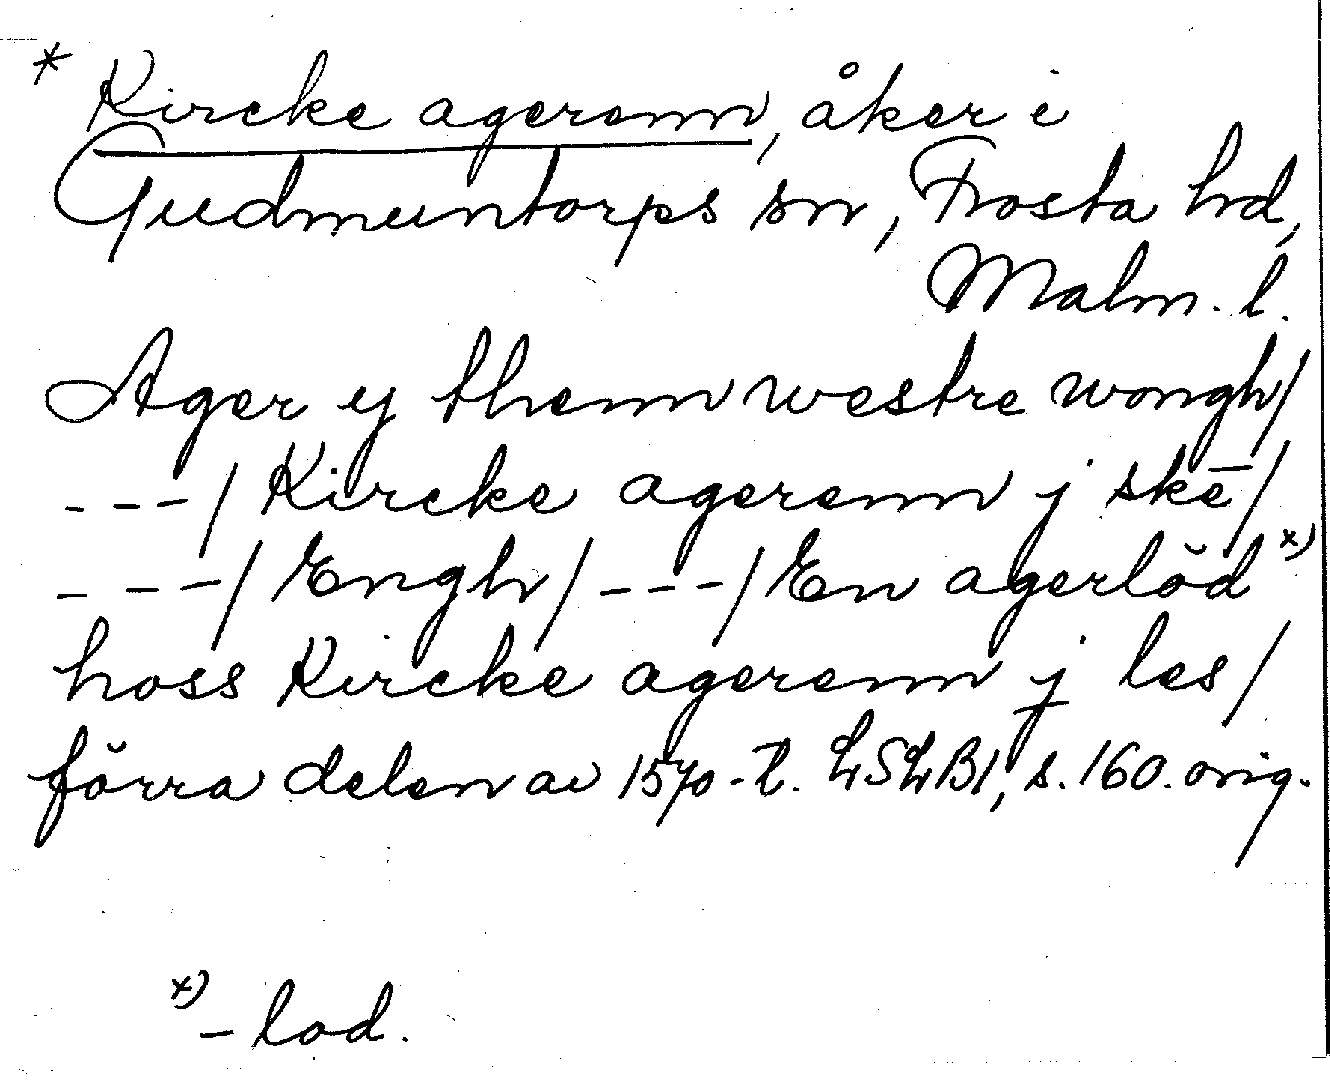 * Kircke agerenn, åker i
Gudmuntorps sn, Frosta hd,
Malm. l.
Ager y thenn westre wongh/
---/ Kircke agerenn j skē/
---/ Engh/ ---/ En agerlŏd x)
hoss Kircke agerenn j les/
förra delen av 1570-t. LSLB1, s. 160. orig.
x) - lod.